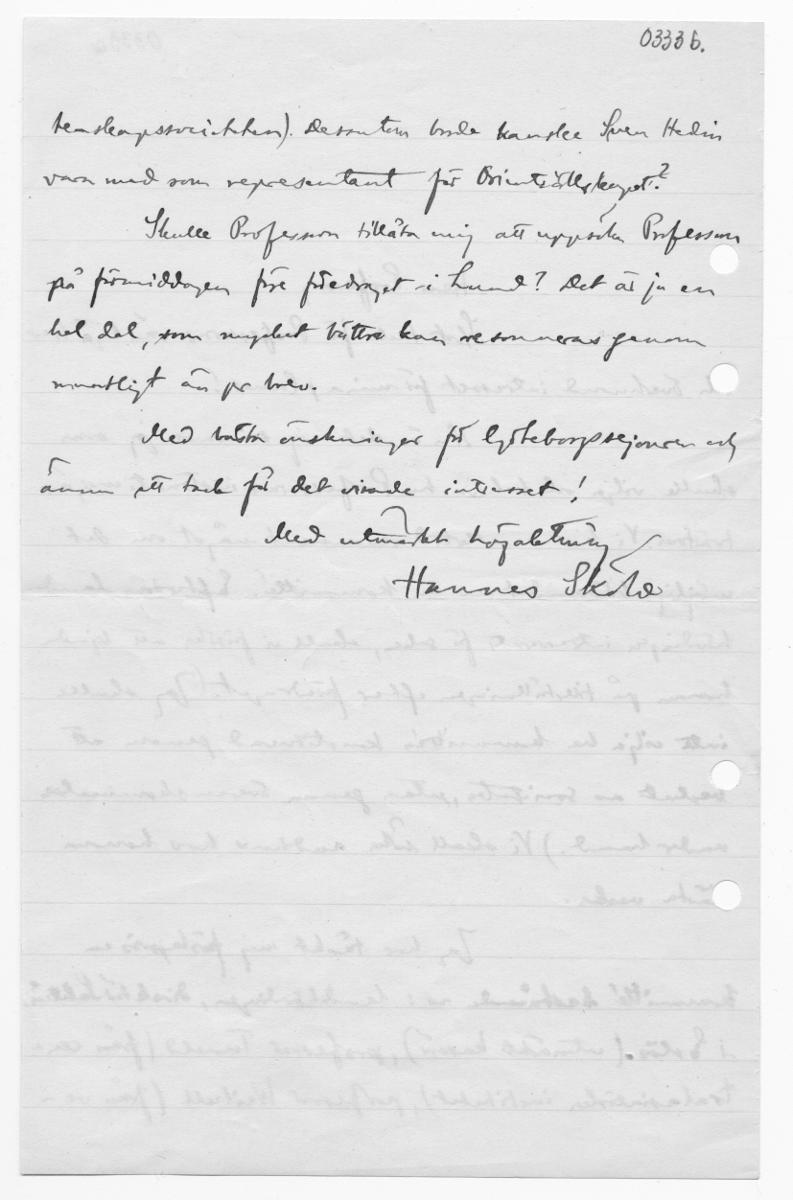 03336.
tenskapssocieteten). Dessutom borde kanske Sven Hedin
vara med som representant för Orientsällskapet?
Skulle Professorn tillåta mig att uppsöka Professorn
på förmiddagen före föredraget i Lund? Det är ju en
hel del, som mycket bättre kan resonneras genom
muntligt än pr brev.
Med bästa önskningar för Göteborgssejouren och
ännu ett tack för det visade intresset!
Med utmärkt högaktning
Hannes Sköld